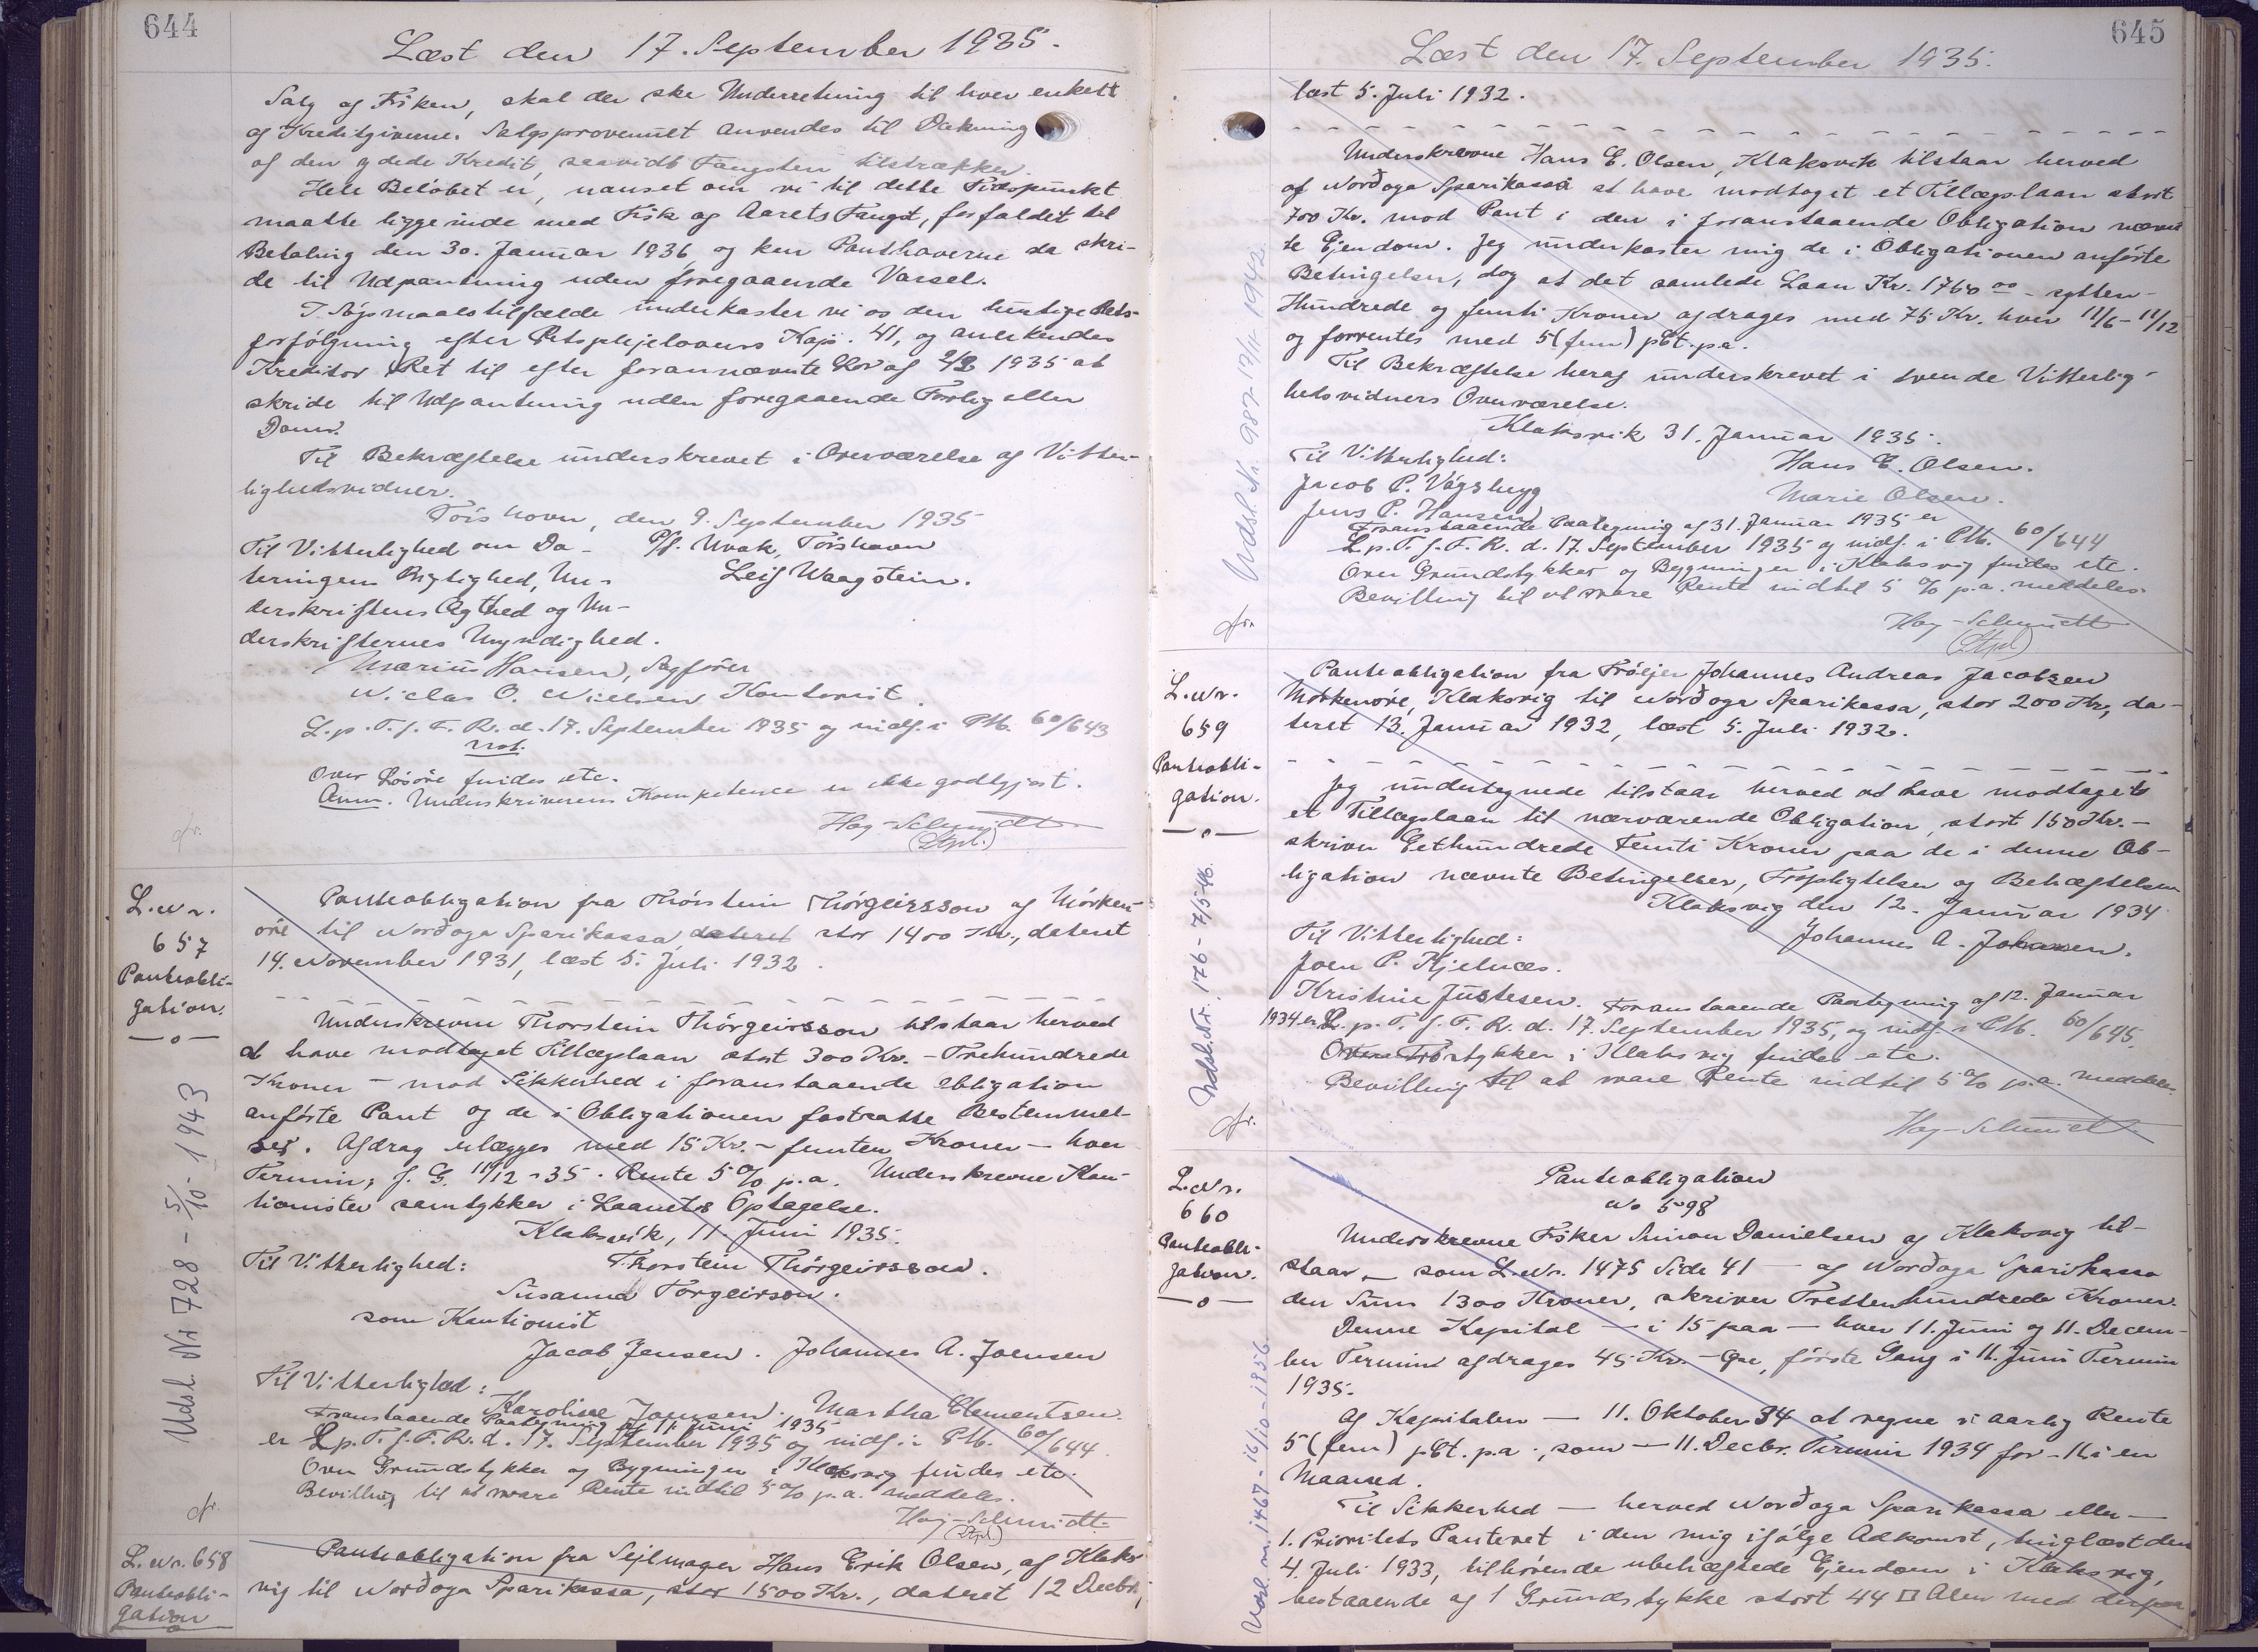 644
Læst den 17. September 1935.
Salg af Fisken, skal der ske Underretning til hver enkelt
af Kreditgiverne. Salgsprovenuet anvendes til Dækning
af den ydede Kredit, saavidt Fangsten tilstrækker.
Hele Beløbet er, uanset om vi til dette Tidspunkt
maatte ligge inde med Fisk af Aarets Fangst, forfaldet til
Betaling den 30. Januar 1936 og kan Panthaverne da skri-
de til Udpantning uden foregaaende Varsel.
I Søgsmaalstilfælde underkaster vi os den hurtige Rets-
forfölgning efter Retsplejelovens Kap. 41, og anerkendes
Kreditor Ret til efter forannævnte Lov af 2/2 1935 at
skride til Udpantning uden foregaaende Forlig eller
Dom.
Til Bekræftelse underskrevet i Overværelse af Vitter-
lighedsvidner.
Tórshavn, den 9. September 1935
Til Vitterlighed om Da- P/f. Uvak, Tórshavn
teringens Rigtighed, Un- Leif Waagstein.
derskriftens Ægthed og Un-
derskrifternes Myndighed.
Marius Hansen, Sagfører
Niclas O. Nielsen Kontorist.
L. p. T. f. F. R. d. 17. September 1935 og indf. i PM. 60/643
not.
Over Løsøre findes etc.
Anm. Underskriverens Kompetence er ikke godtgjort.
Hoy-Schmidt
(Stpl.)
L. Nr.
657
Panteobli-
gation.
—o—
Udsl. Nr 728 - 5/10 - 1943
Panteobligation fra Thórstein Thórgeirsson af Mörken-
öre til Norðoya Sparikassa dateret stor 1400 Kr., dateret
14. November 1931, læst 5. Juli 1932.
Underskrevne Thorstein Thórgeirsson tilstaar herved
at have modtaget Tillægslaan stort 300 Kr. - Trehundrede
Kroner - mod Sikkerhed i foranstaaende Obligation
anförte Pant og de i Obligationen fastsatte Bestemmel-
ser. Afdrag erlægges med 15 Kr. - femten Kroner - hver
Termin, f. G. 11/12 - 35. Rente 5 % p.a. Underskrevne Kau-
tionister samtykker i Laanets Optagelse.
Klaksvík, 11. Juni 1935.
Til Vitterlighed: Thorstein Thórgeirsson.
Susanna Torgeirson.
som Kautionist
Jacob Jensen. Johannes A. Joensen
Til Vitterlighed:
Karoline Joensen. Martha Clementsen.
Foranstaaende Paategning af 11. Juni 1935
er L. p. T. f. F. R. d. 17. September 1935 og indf. i PM. 60/644.
Over Grundstykker og Bygninger i Klaksvig findes etc.
Bevilling til at svare Rente indtil 5 % p.a. meddeles.
Hoy-Schmidt
(Stpl)
L. Nr. 658
Panteobli-
gation
Panteobligation fra Sejlmager Hans Erik Olsen, af Klaks-
vig til Norðoya Sparikassa, stor 1500 Kr., dateret 12 Decbr.,
645
Læst den 17. September 1935.
læst 5. Juli 1932.
Underskrevne Hans E. Olsen, Klaksvik tilstaar herved
af Norðoya Sparikassa at have modtaget et Tillægslaan stort
700 Kr. mod Pant i den i foranstaaende Obligation nævn-
te Ejendom. Jeg underkaster mig de i Obligationen anförte
Betingelser, dog at det samlede Laan Kr. 1750 00 - sytten-
Hundrede og femti Kroner afdrages med 75 Kr. hver 11/6 - 11/12
og forrentes med 5 (fem) pCt. p.a.
Til Bekræftelse heraf underskrevet i tvende Vitterlig-
hedsvidners Overværelse.
Klaksvik 31. Januar 1935.
Til Vitterlighed: Hans E. Olsen.
Jacob P. Vágsbyg Marie Olsen.
Jens P. Hansen
Foranstaaende Paategning af 31. Januar 1935 er
L. p. T. f. F. R. d. 17. September 1935 og indf. i PM. 60/644
Over Grundstykker og Bygninger i Klaksvig findes etc.
Bevilling til at svare Rente indtil 5 % p.a. meddeles.
Hoy-Schmidt
(Stpl)
Udsl. Nr. 987 - 19/11 1942.
L. Nr.
659
Panteobli-
gation.
—o—
Udsl. Nr. 176 - 7/5 46.
Panteobligation fra Johannes Andreas Jacobsen
Mörkenöre, Klaksvig til Norðoya Sparikassa, stor 200 Kr., da-
teret 13. Januar 1932, læst 5. Juli 1932.
Jeg undertegnede tilstaar herved at have modtaget
et Tillægslaan til nærværende Obligation, stort 150 Kr. -
skriver Eethundrede Femti Kroner paa de i denne Ob-
ligation nævnte Betingelser, Forpligtelser og Behæftelser
Klaksvig den 12. Januar 1934
Til Vitterlighed: Johannes A.
Joen P. Kjelnæs.
Kristine Justesen. Foranstaaende Paategning af 12. Januar
1934 er L. p. T. f. F. R. d. 17. September 1935, og indf. i PM. 60/645.
i Klaksvig findes etc.
Bevilling til at svare Rente indtil 5 % p.a. meddeles.
Hoy-Schmidt
L. Nr.
660
Panteobli-
gation.
—o—
Udsl. nr. 1467 - 16/10 - 1956
Panteobligation
No 598
Underskrevne Fisker Simon Danielsen af Klaksvig til-
staar — som L. Nr. 1475 Side 41 — af Norðoya Sparikassa
den Sum 1300 Kroner, skriver Trettenhundrede Kroner.
Denne Kapital — i 15 paa — hver 11. Juni og 11. Decem-
ber Termin afdrages 45 Kr. - Øre, förste Gang i 11. Juni Termin
1935.
Af Kapitalen — 11. Oktober 34 at regne i aarlig Rente
5 (fem) pCt. p.a., som — 11. Decbr. Termin 1934 for - i en
Maaned.
Til Sikkerhed — herved Norðoya Sparikassa eller —
1. Prioritets Panteret i den mig ifølge Adkomst, tinglæst den
4. Juli 1933, tilhörende ubehæftede Ejendom i Klaksvig,
bestaaende af 1 Grundstykke stort 44 □ Alen med